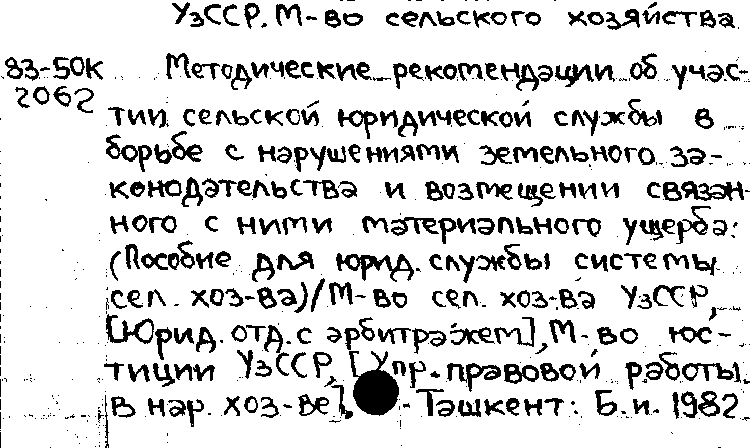 УзССР. М-во сельского хозяйства
83-50к Методические рекомендации об учас-
2062 тии сельской юридической службы в
борьбе с нарушениями земельного за-
конодательства и возмещении связан-
ного с ними материального ущерба:
(Пособие для юрид. службы системы
сел. хоз-ва)/М-во сел. хоз-ва УзССР,
[Юрид. отд. с арбитражем], М-во юс-
тиции УзССР, [Упр. правовой работы
в нар. хоз-ве]. - Ташкент: Б.и. 1982